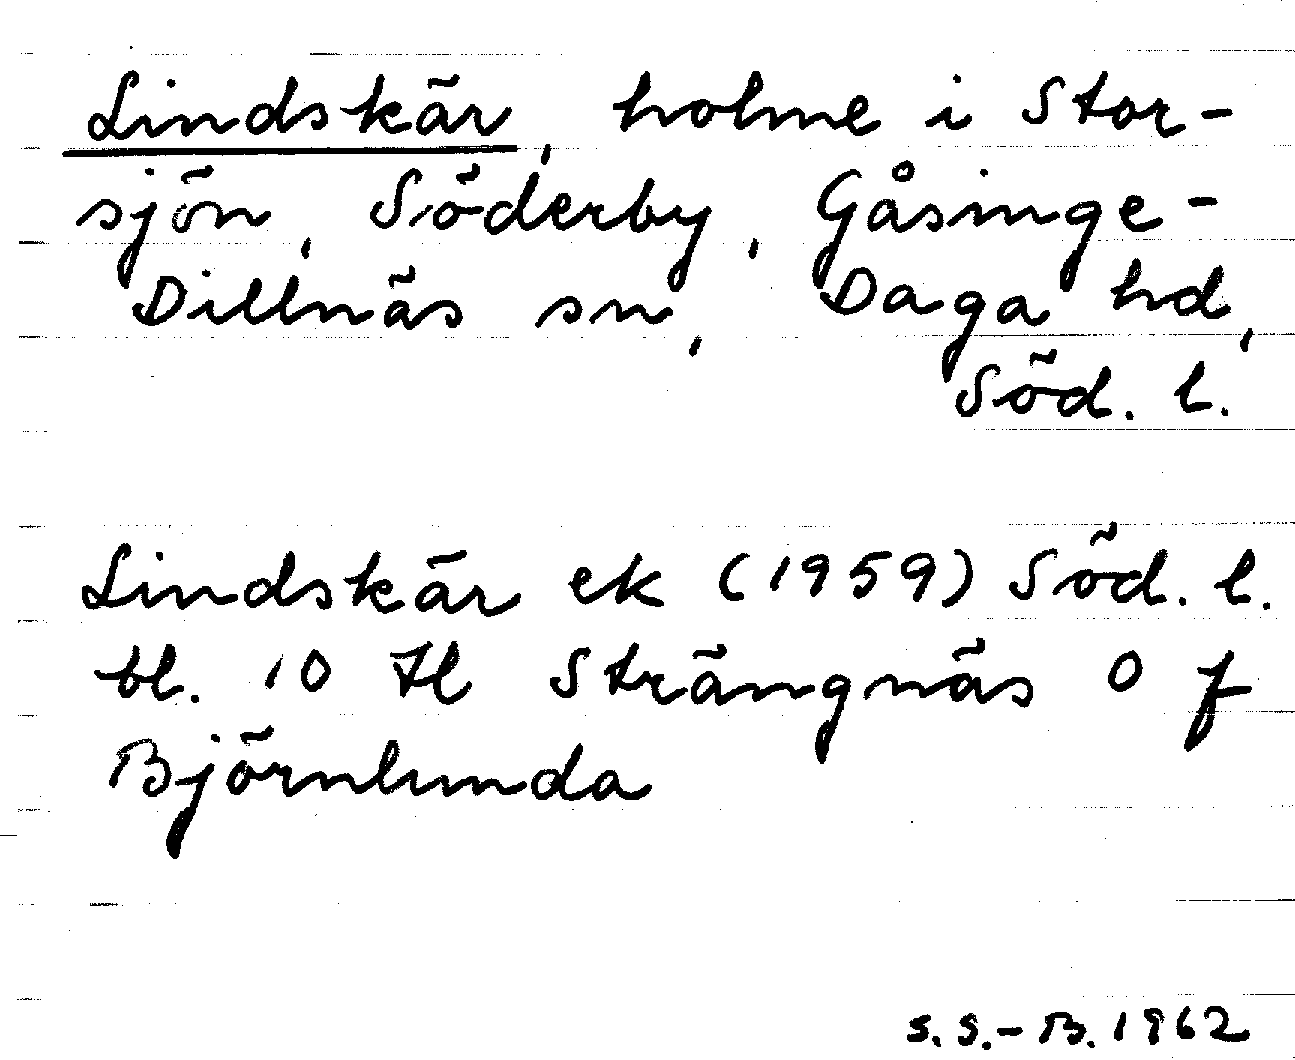 Lindskär, holme i Stor-
sjön, Söderby, Gåsinge-
Dillnäs sn, Daga hd,
Söd. l.
Lindskär ek (1959) Söd. l.
bl. 10 tl Strängnäs O f
Björnlunda
S. S.-B. 1962